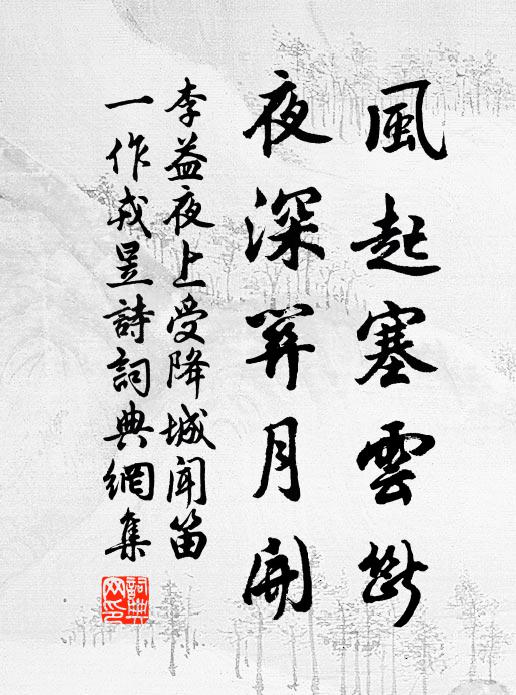 風起塞雲斷
夜深關月開
李益夜上受降城聞笛
一作戎昱詩詞典網集